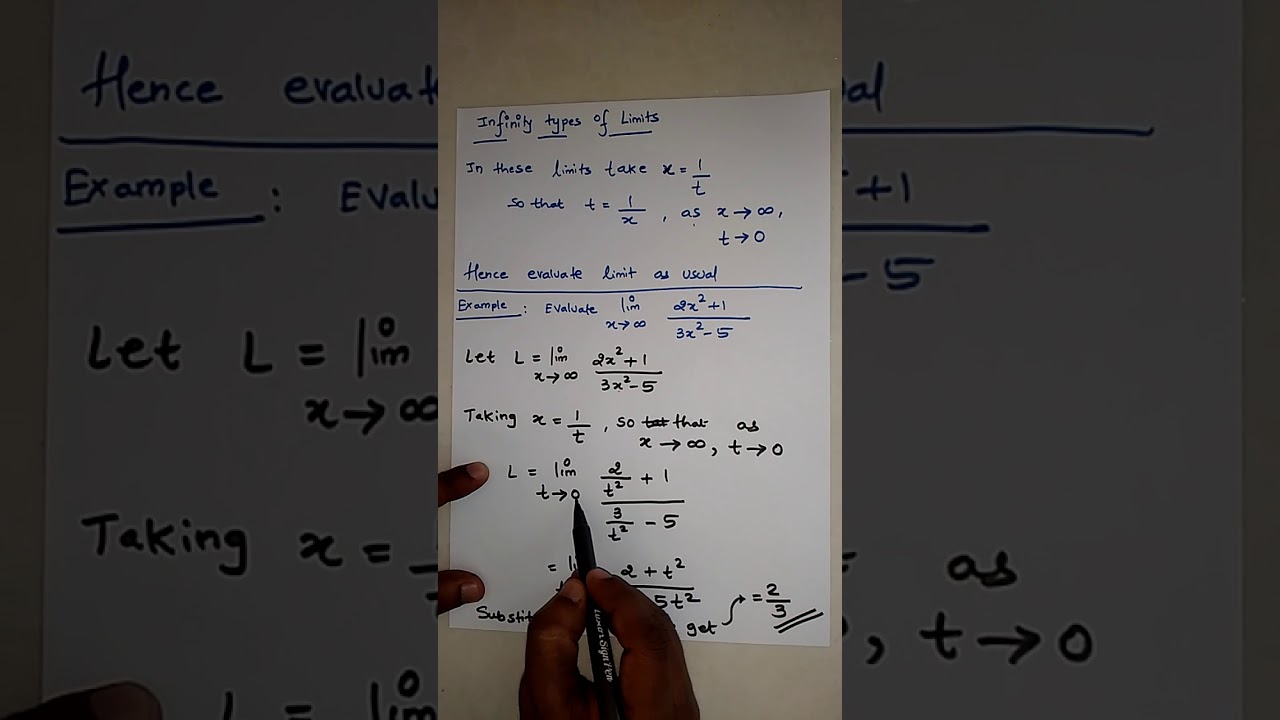 Infinity types of Limits
In these limits take x = 1/t
so that t = 1/x , as x → ∞,
t → 0
Hence evaluate limit as usual
Example : Evaluate lim x→∞ (2x²+1)/(3x²-5)
Let L = lim x→∞ (2x²+1)/(3x²-5)
Taking x = 1/t , so that as
x → ∞, t → 0
L = lim t→0 (2/t² + 1)/(3/t² - 5)
= 2 + t²
5t²
= 2/3
get
Luxor Sign Pen